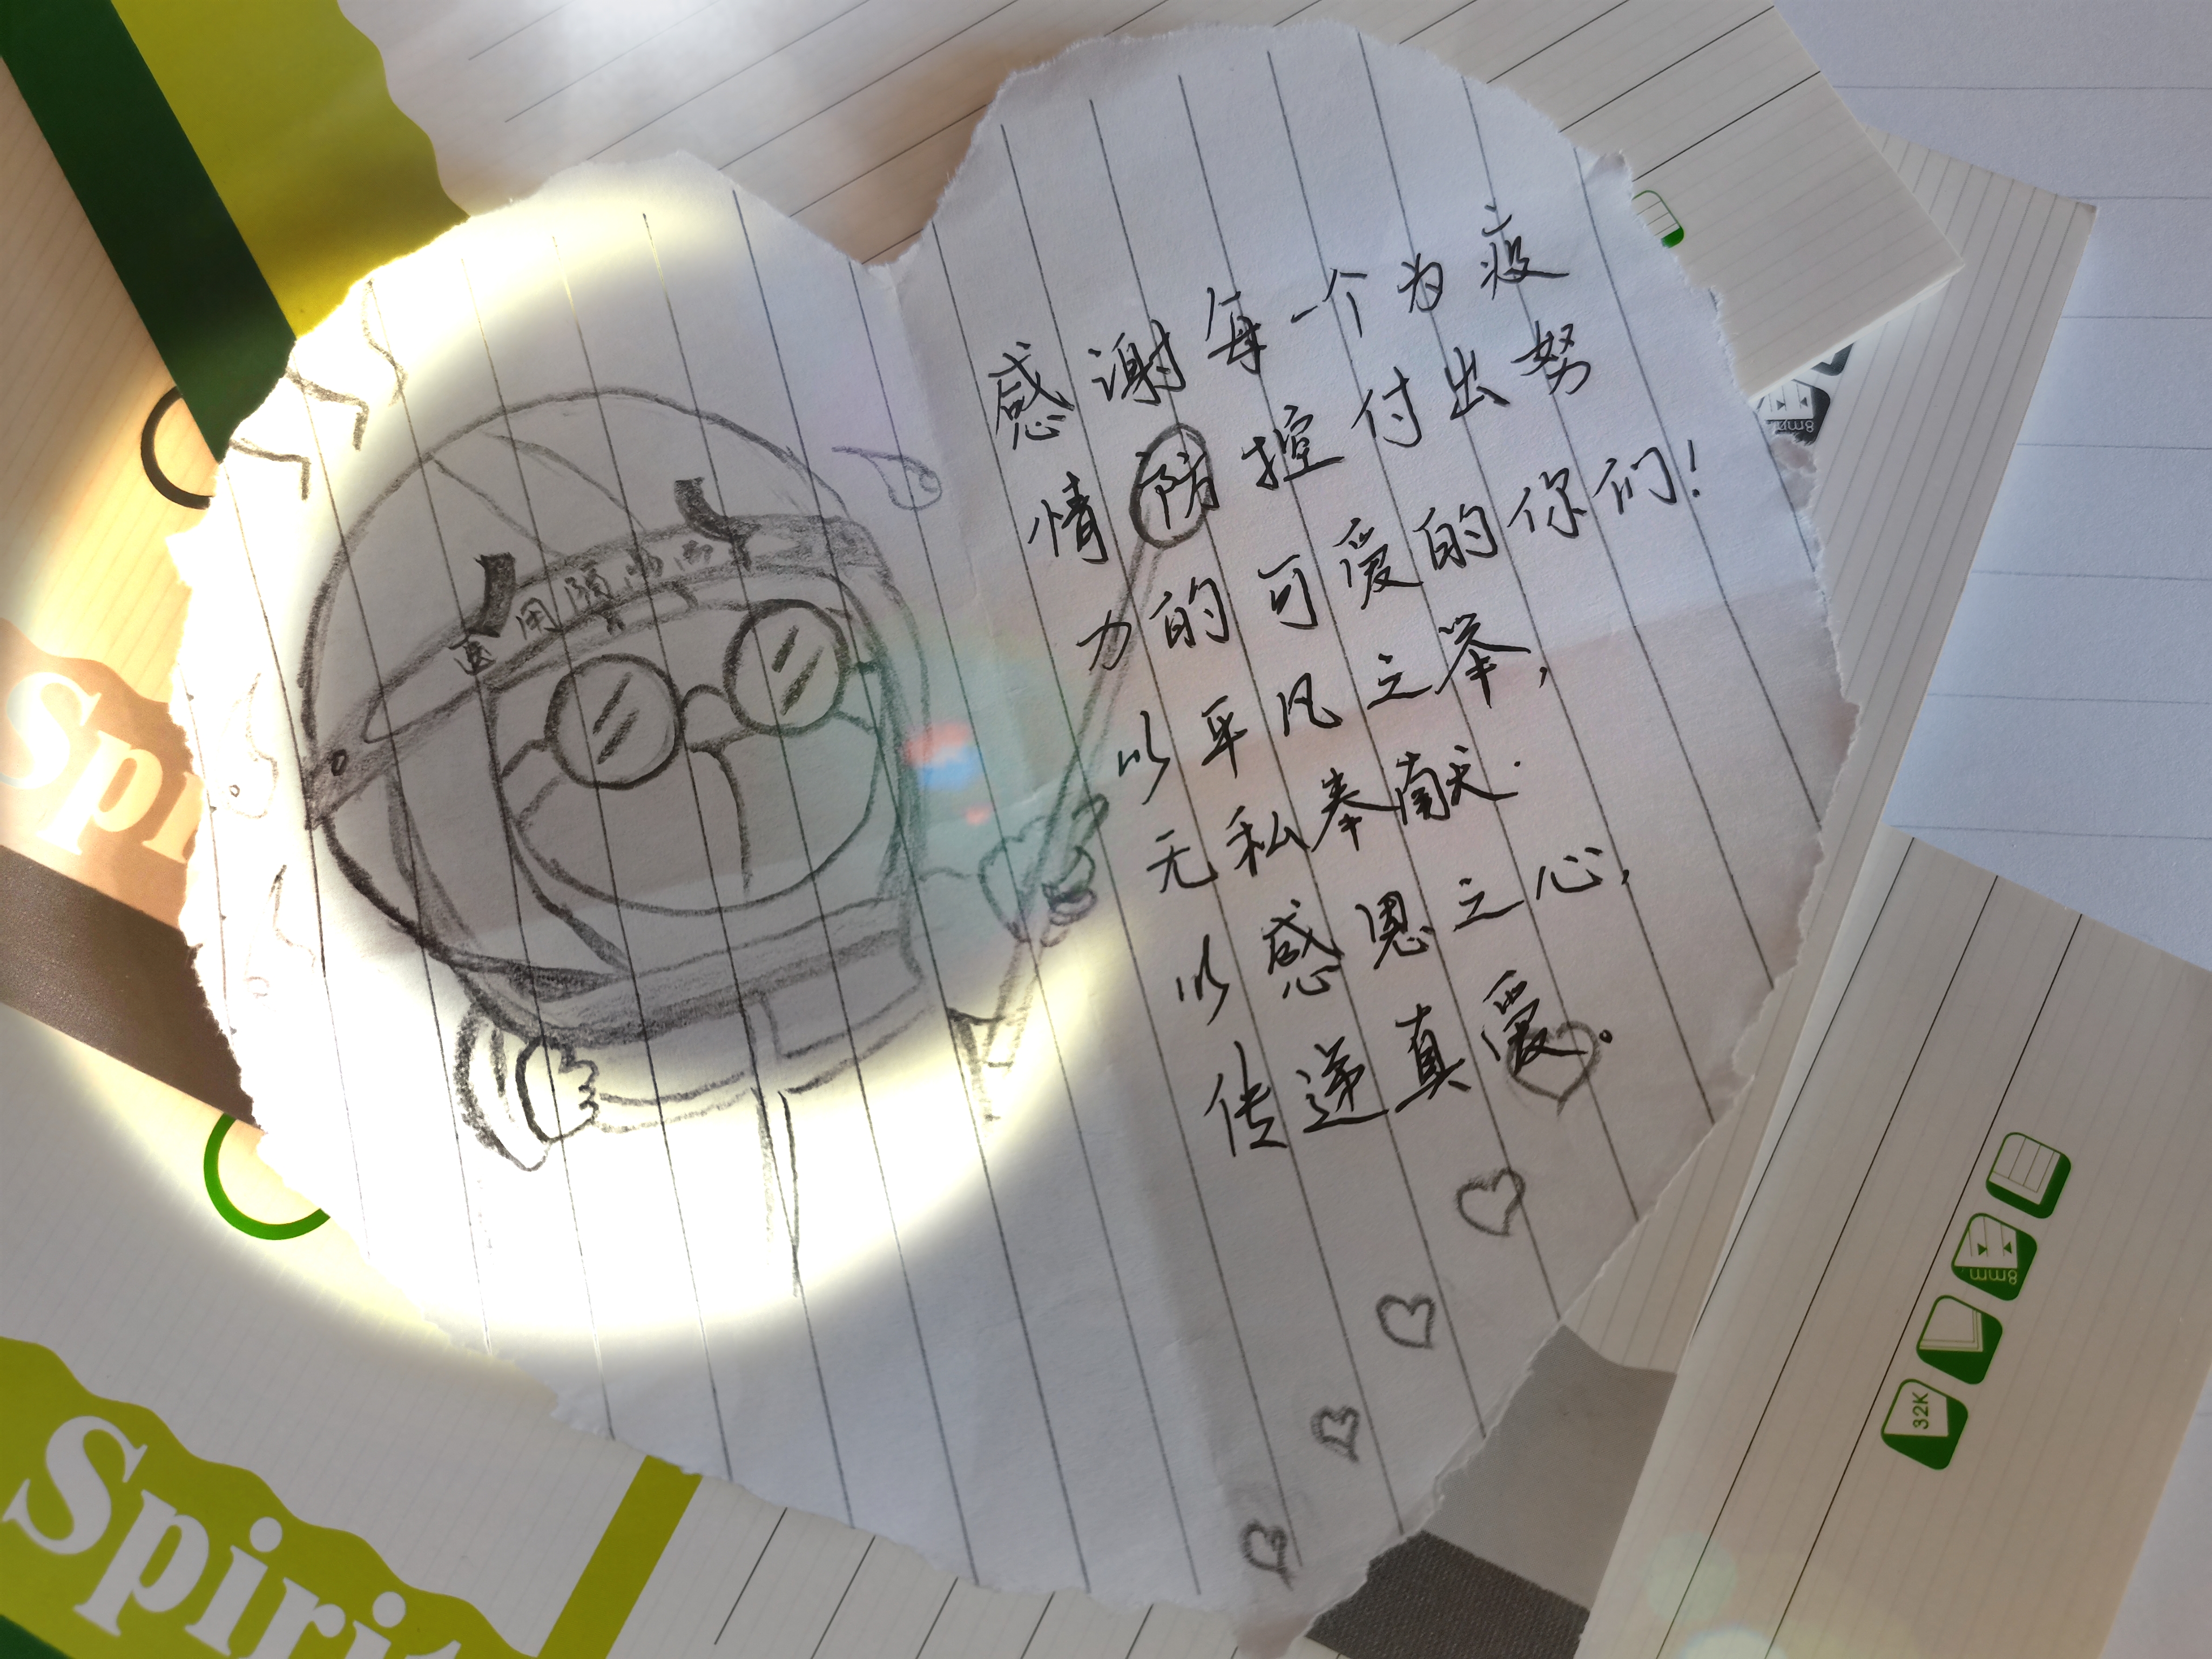 感谢每一个为疫
情防控付出努
力的可爱的你们！
以平凡之举，
无私奉献.
以感恩之心，
传递真爱。
医用
Spi
Spirit
8mm
8mm
32K